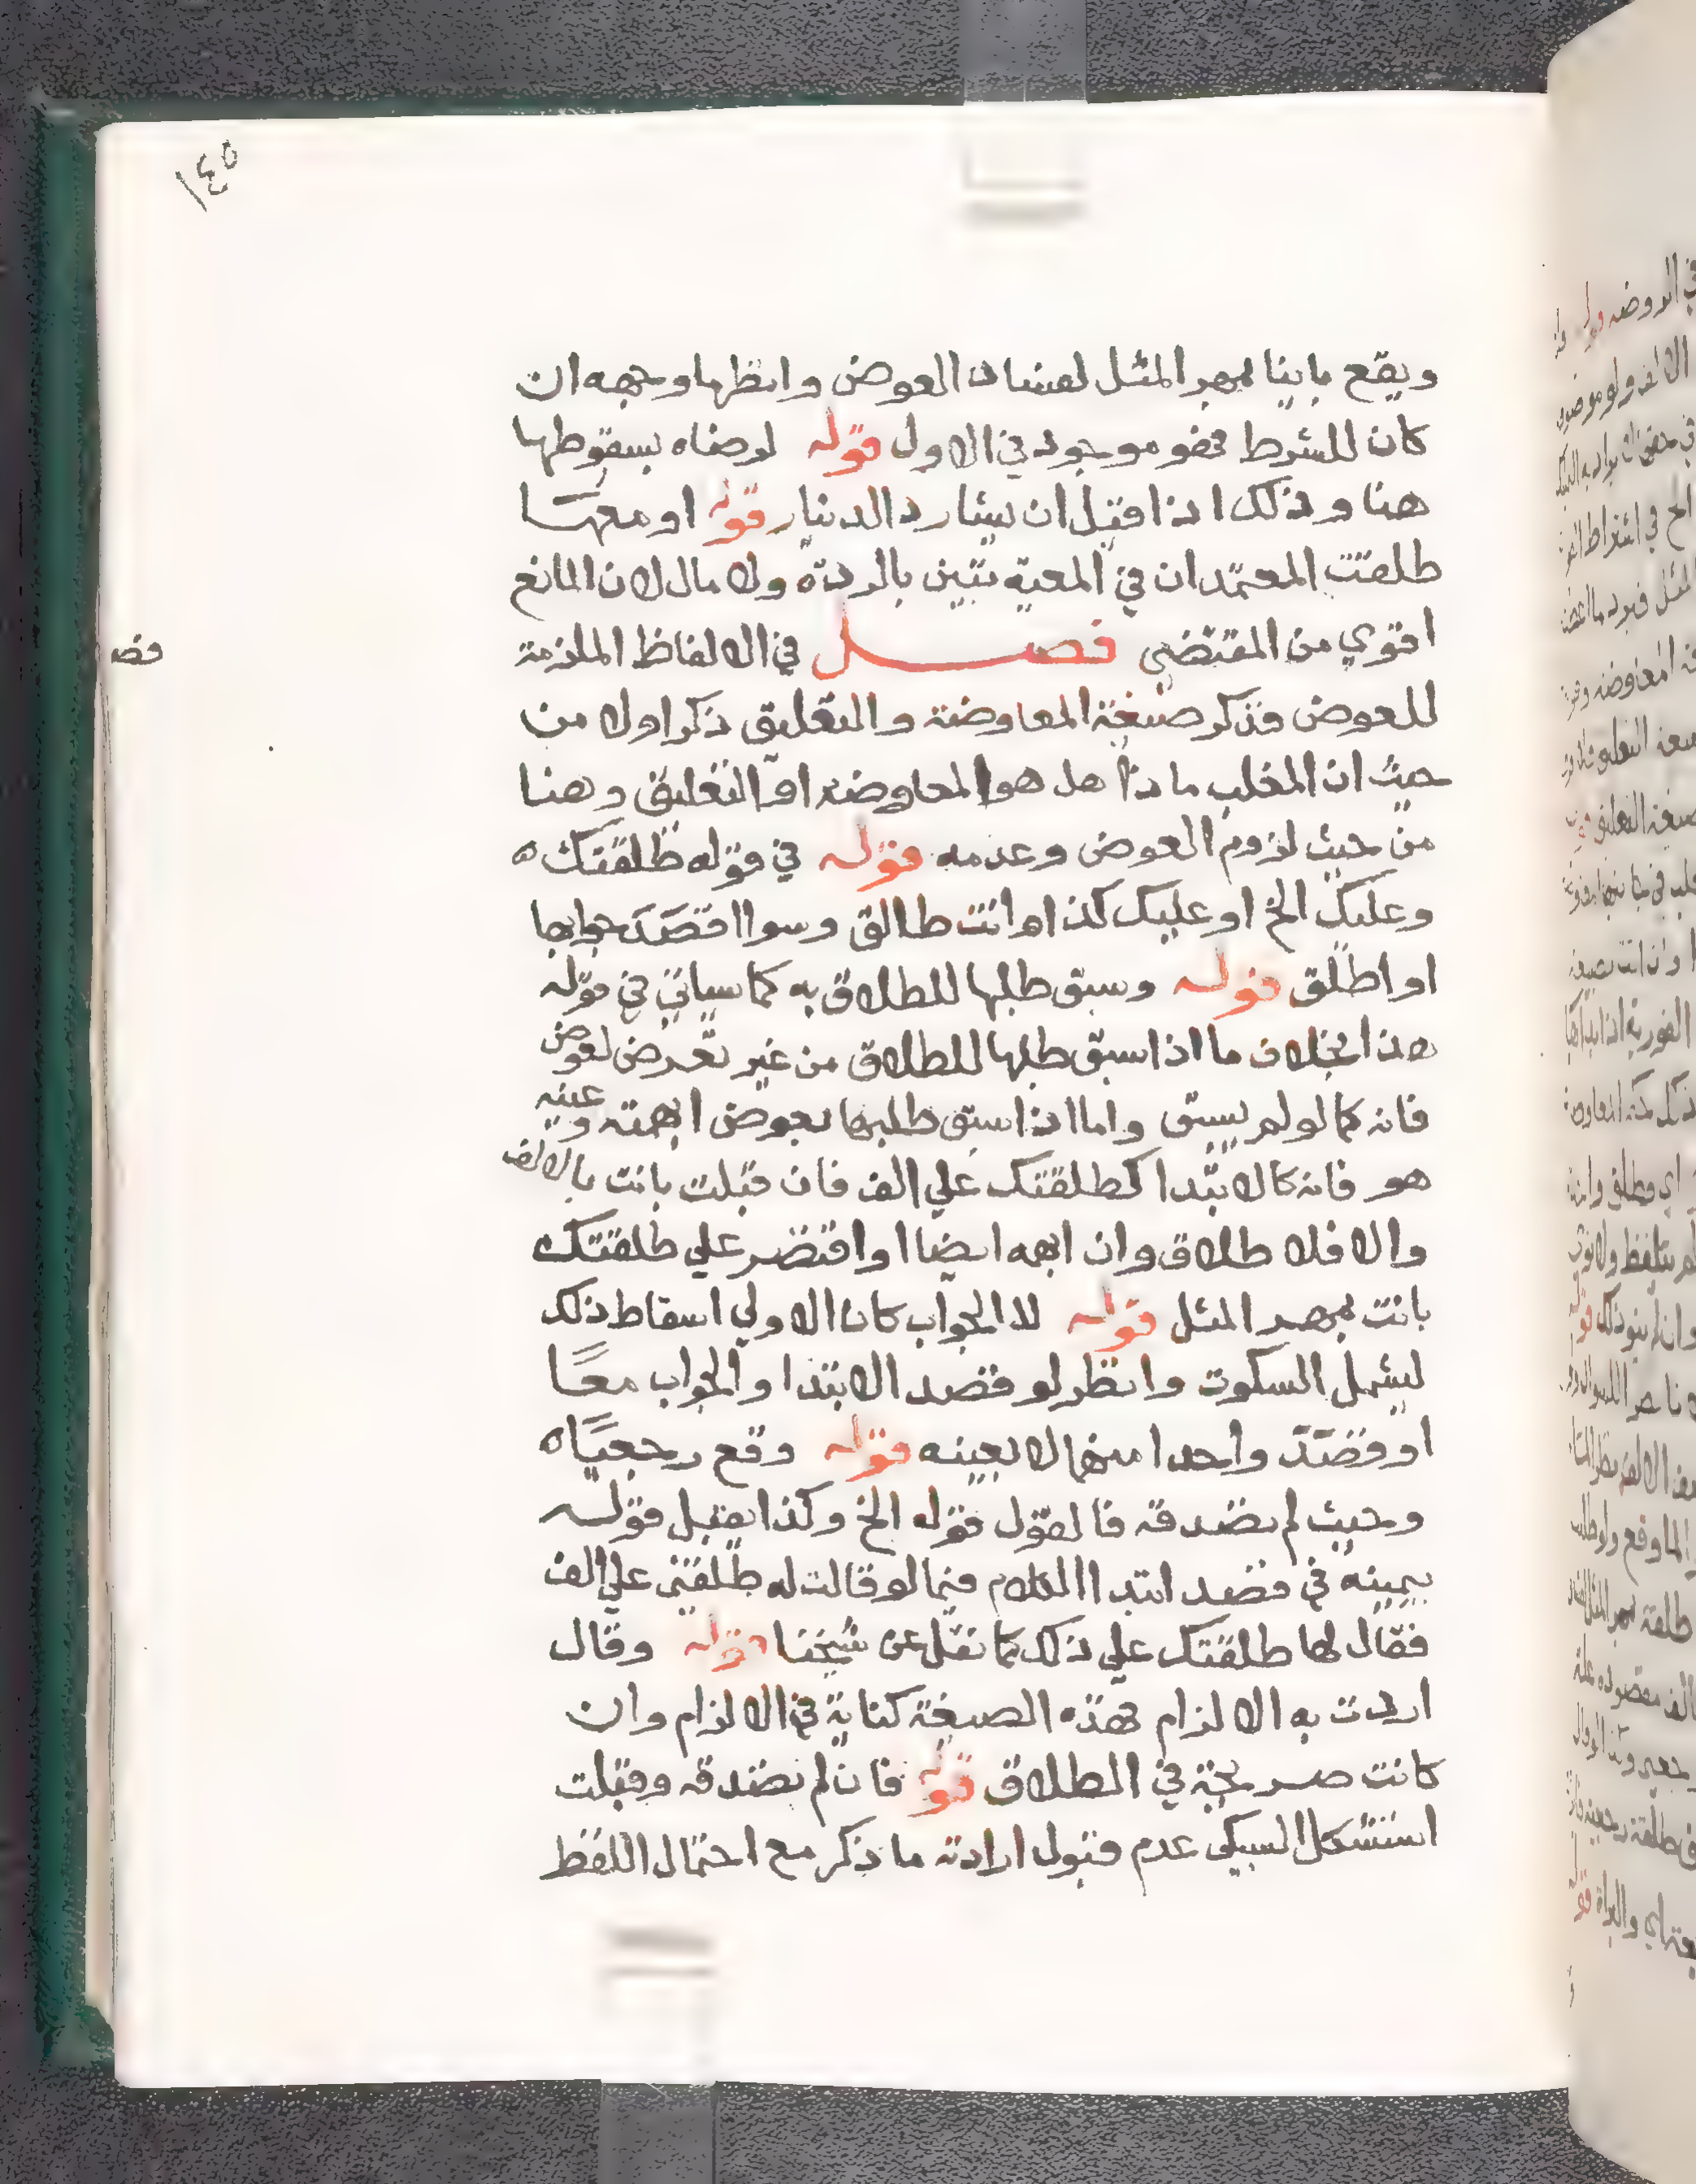 ١٤٥
ويقع باينا بمهر المثل لفساد العوض وانظر ما وجهه ان
كان للشرط فهو موجود في الاول قوله لرضاه بسقوطها
هنا وذلك اذا قبل ان يشا رد الدينار قوله او معها
طلقت المعتمد ان في المعية تبين بالردة ولا مال لان المانع
اقوي من المقتضي فصل في الالفاظ الملزمة
فصـ
للعوض فذكر صيغة المعاوضة والتعليق ذكر اولا من
حيث ان المغلب ماذا هل هو المعاوضة او التعليق وهنا
من حيث لزوم العوض وعدمه قوله في قوله طلقتك ه
وعليك الخ او عليك كذا وانت طالق وسوا قصد جوابها
او اطلق قوله وسبق طلبها للطلاق به كما سياتي في قوله
هذا بخلاف ما اذا سبق طلبها للطلاق من غير تعرض لعوض
فانه كما لو لم يسبق واما اذا سبق طلبها بعوض ابهمته وعينه
هو فانه كالابتدا كطلقتك علي الف فان قبلت بانت بالالف
والا فلا طلاق وان ابهمه ايضا او اقتصر علي طلقتك
بانت بمهر المثل قوله لا الجواب كان الاولي اسقاط ذلك
ليشمل السكوت وانظر لو قصد الابتدا والجواب معًا
او قصد واحدا منهما لا بعينه قوله وقع رجعيًا ه
وحيث لم تصدقه فالقول قوله الخ وكذا يقبل قوله
بيمينه في قصد ابتدا الكلام فيما لو قالت له طلقني علي الف
فقال لها طلقتك علي ذلك كما نقل عن شيخنا قوله وقال
اردت به الالزام فهذه الصيغة كناية في الالزام وان
كانت صريحة في الطلاق قوله فان لم تصدقه وقبلت
استشكل السبكي عدم قبول ارادته ما ذكر مع احتمال اللفظ